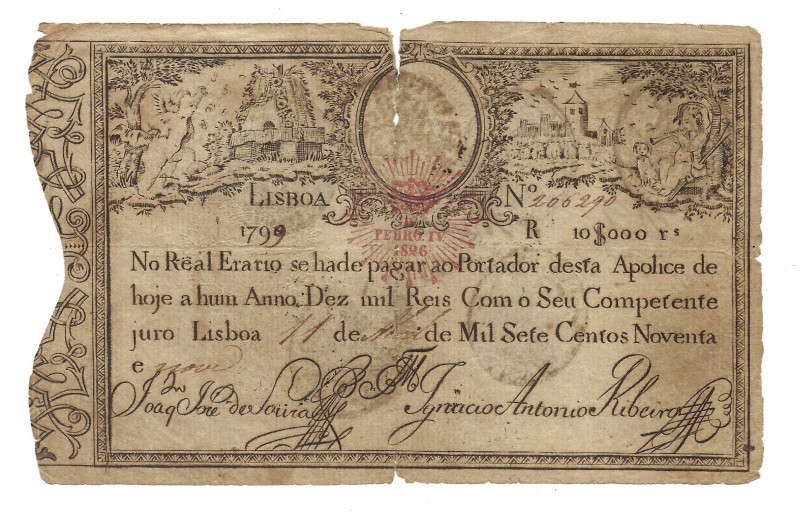 LISBOA Nº 206290
1799 R 10$000 rs
PEDRO IV
1826
No Reäl Erario se ha de pagar ao Portador desta Apolice de
hoje a hum Anno, Dez mil Reis Com o Seu Competente
juro Lisboa 11 de de Mil Sete Centos Noventa
e nove
Joaqm José de Souza Ignacio Antonio Ribeiro